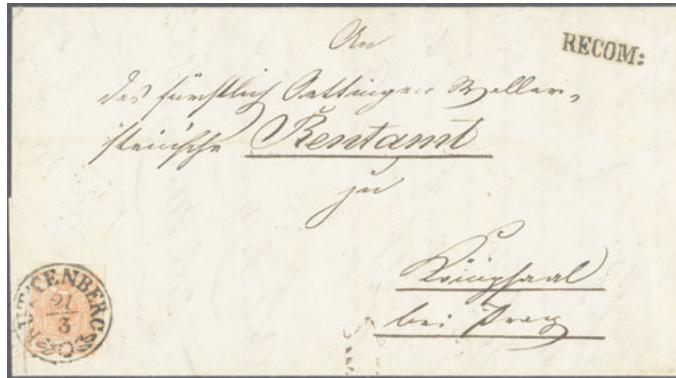 An
RECOM:
das fürstlich Oettingen Waller-
stein'sche Rentamt
zu
Königsaal
bei Prag
KUTTENBERG
21
3